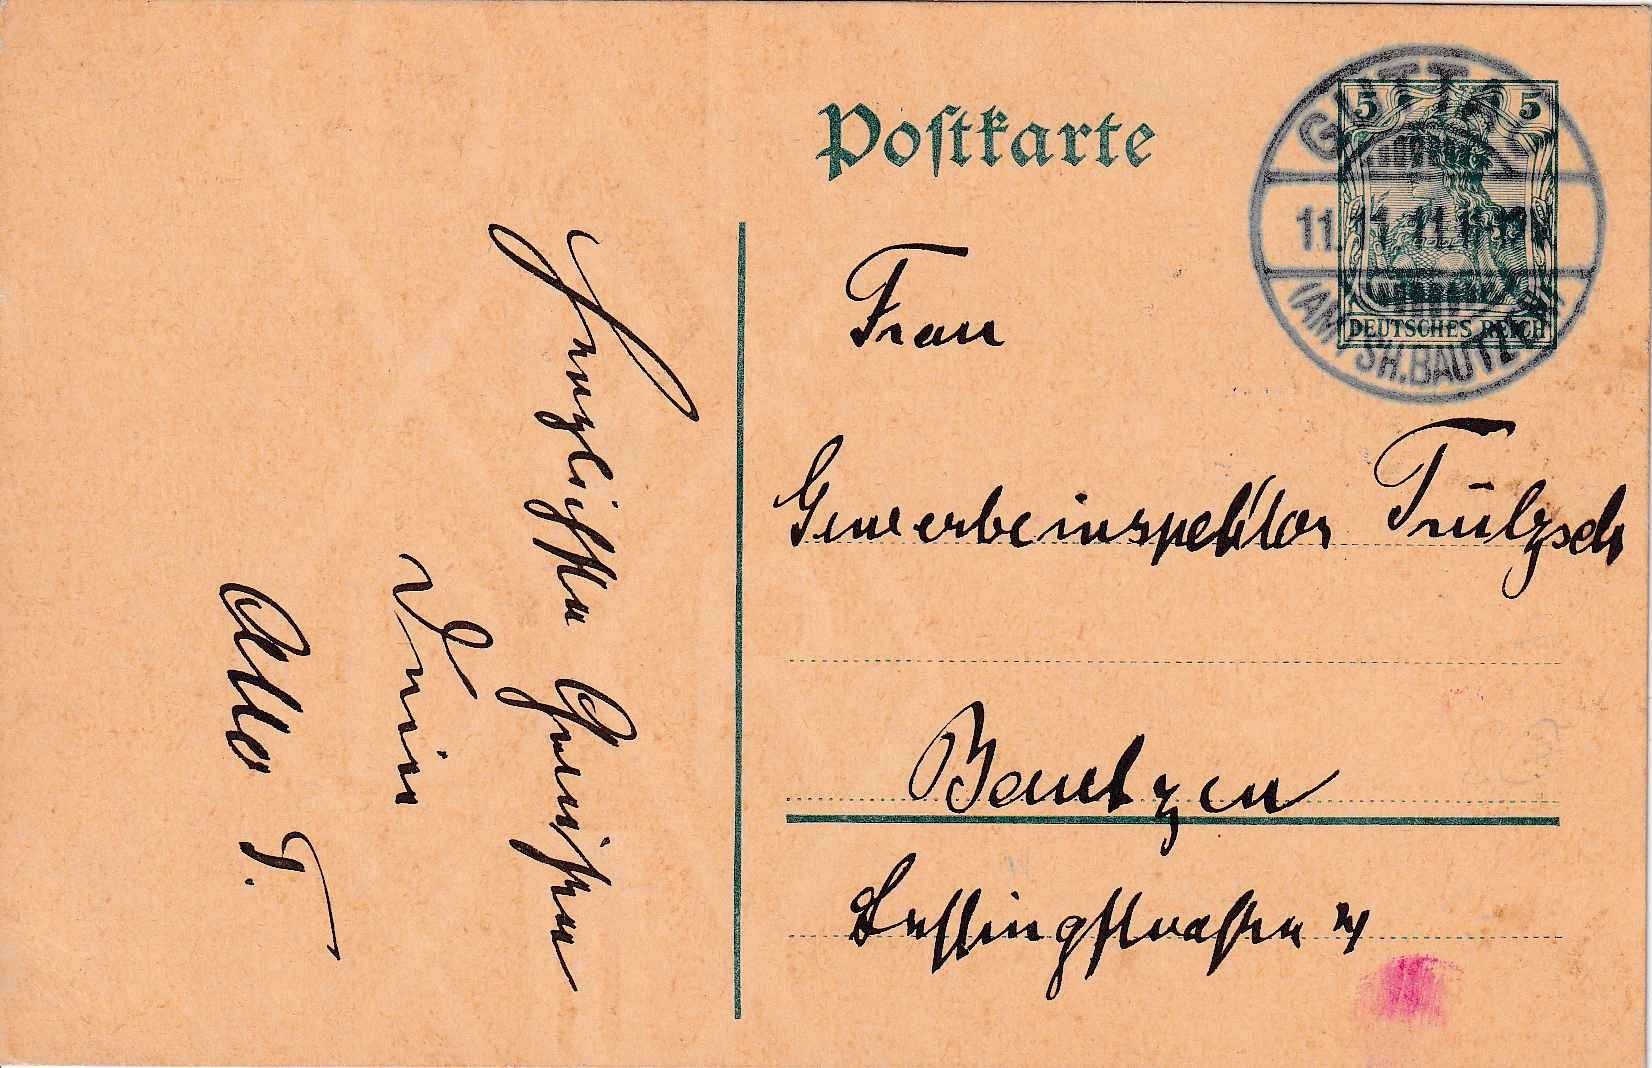 Postkarte
5 5
DEUTSCHES REICH
GUTTA
11.11.11.11-12
(AMTSH. BAUTZEN)
Frau
Gewerbeinspektor Trülzsch
Bautzen
Lessingstraße 4
Herzlichsten Glückwunsch
Dein
Otto T.